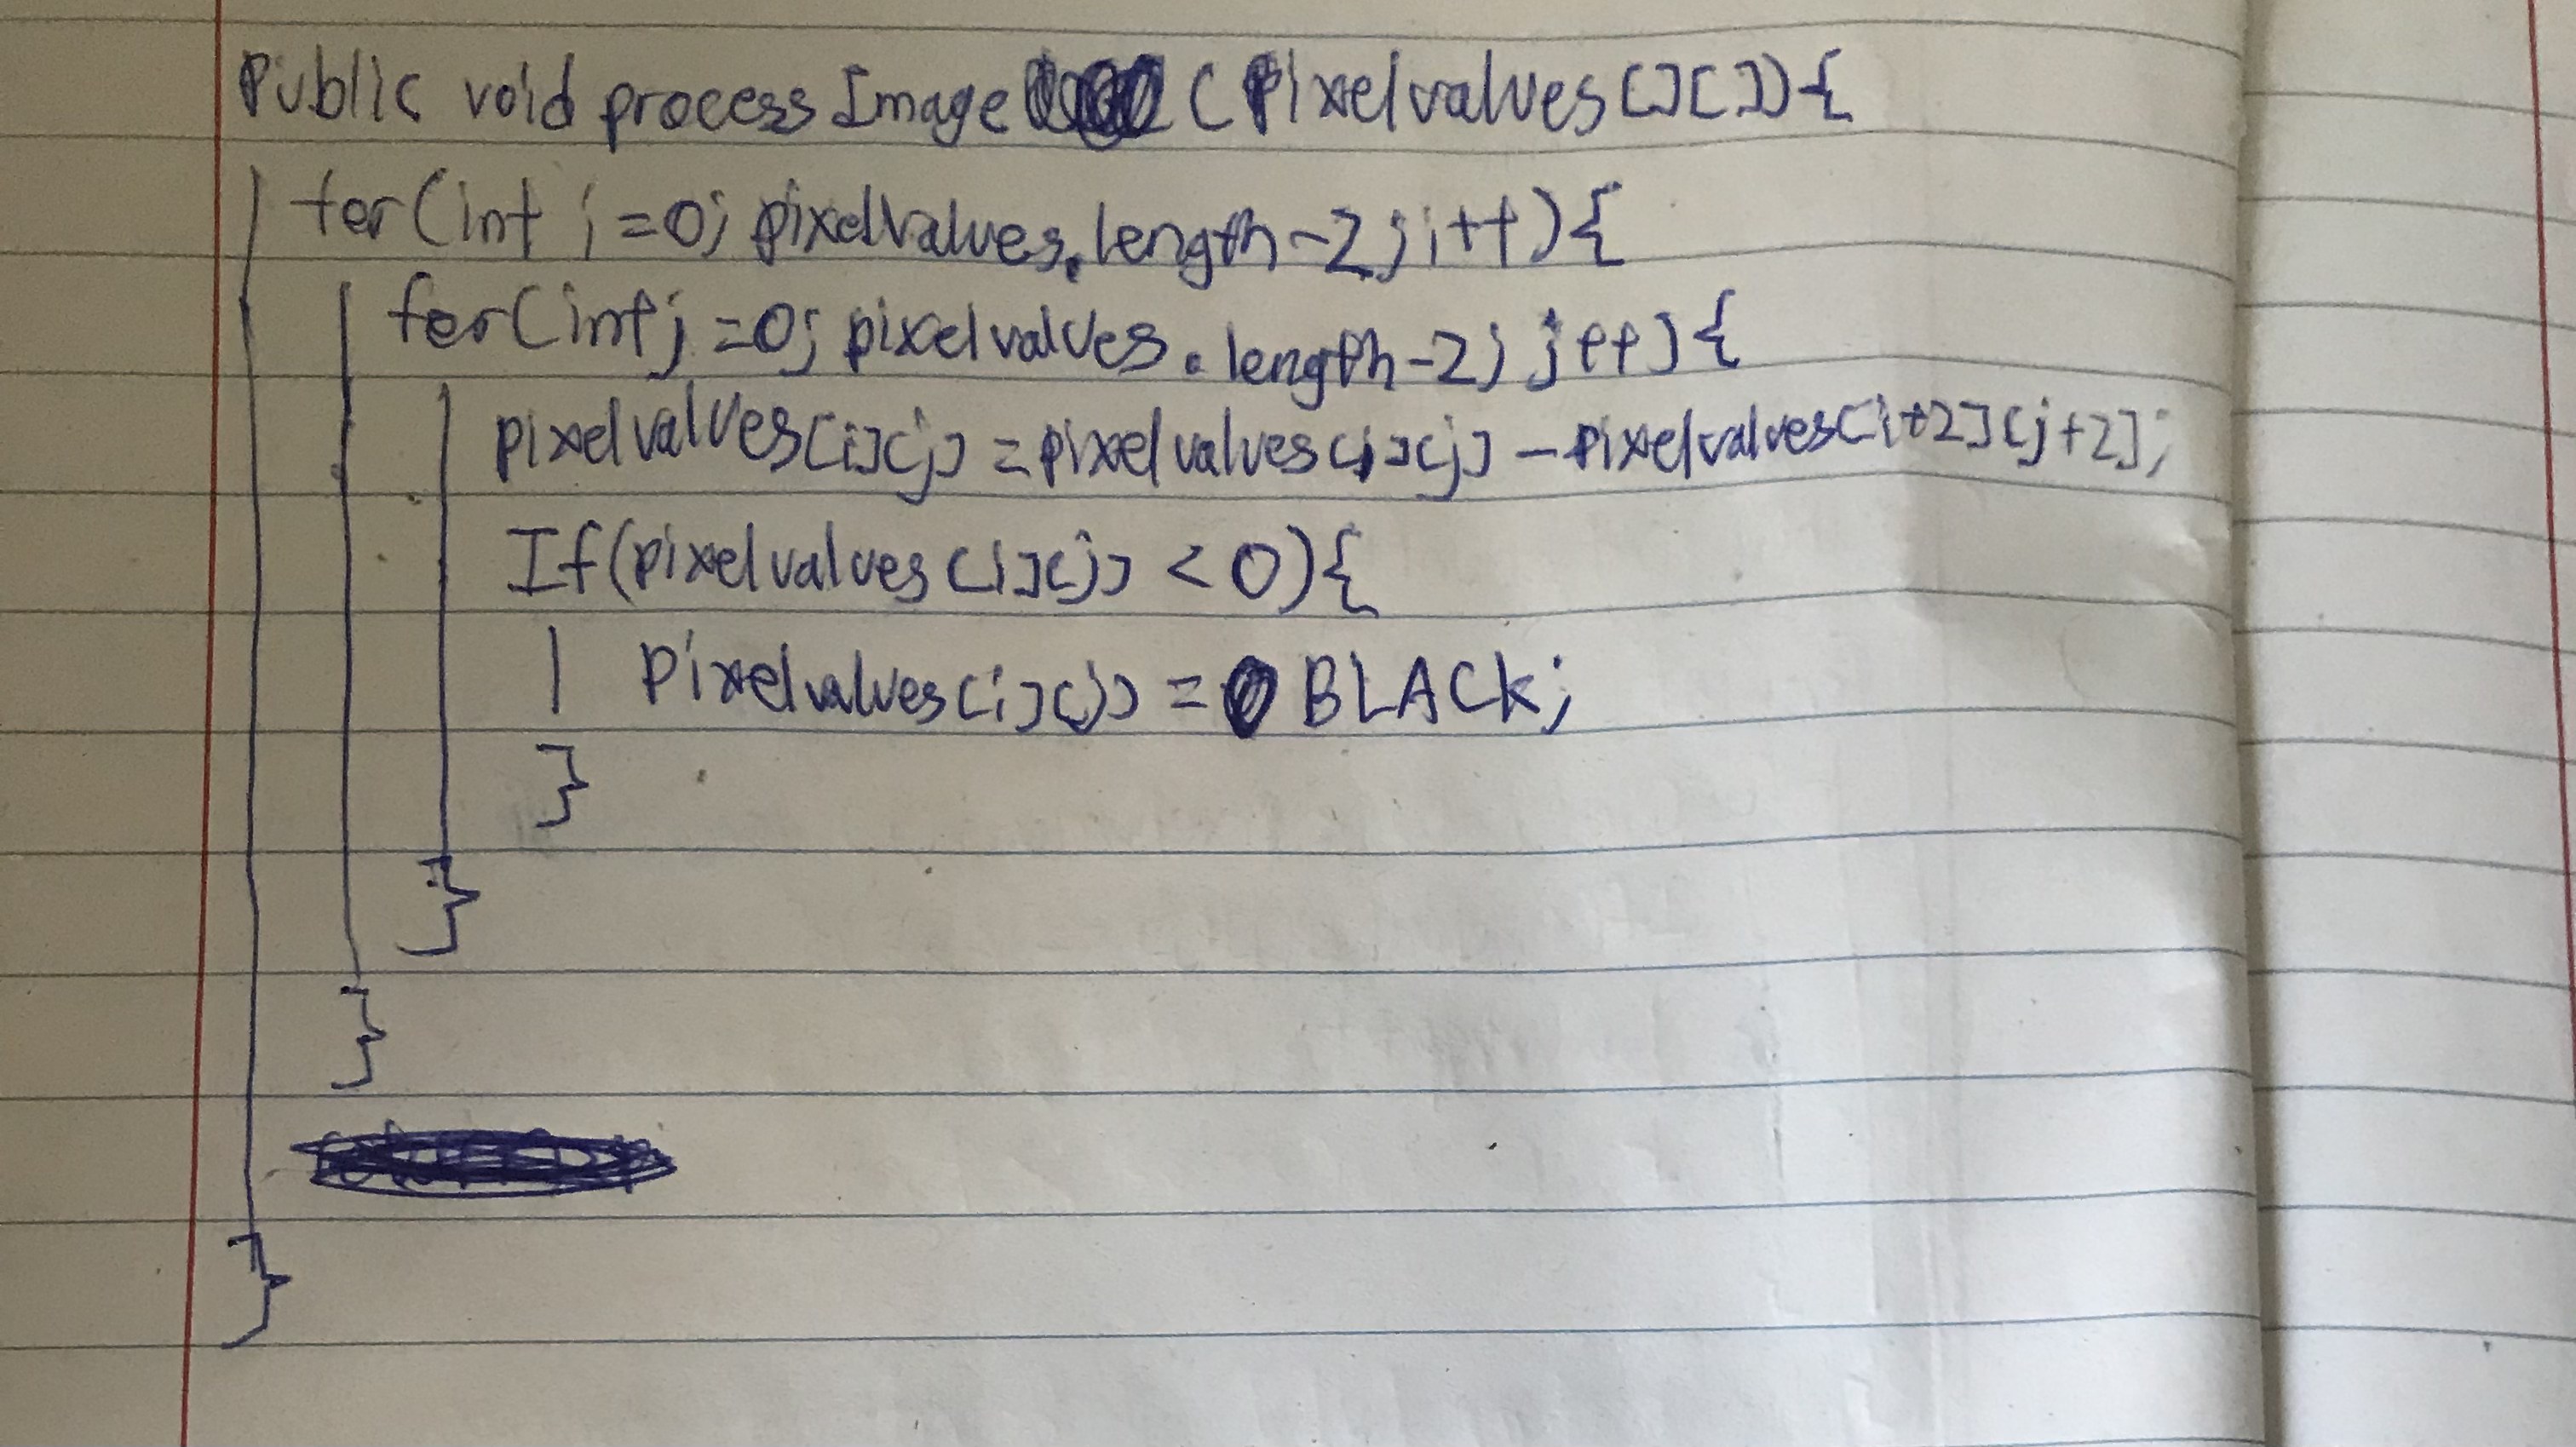 Public void processImage (Pixelvalues[][]){
for(int i=0; pixelValues.length-2; i++){
for(int j=0; pixelvalues.length-2; j++){
pixelvalues[i][j] = pixelvalues[i][j] - pixelvalues[i+2][j+2];
If(pixelvalues[i][j] < 0){
Pixelvalues[i][j] = BLACK;
}
}
}
}